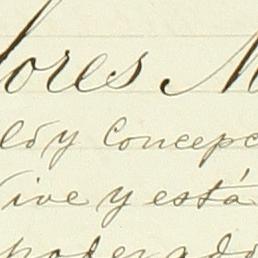 lores M
ldo y Concepc
Vive y está
poderado